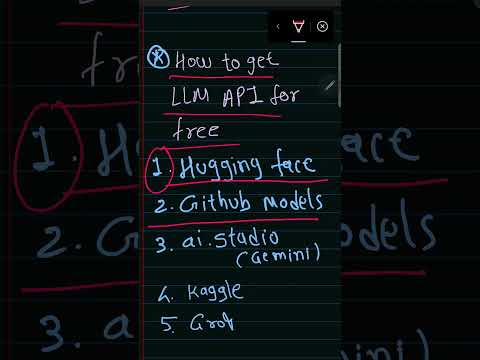 How to get
LLM API for
free
1. Hugging face
2. Github models
3. ai.studio
(Gemini)
4. Kaggle
5. Grok